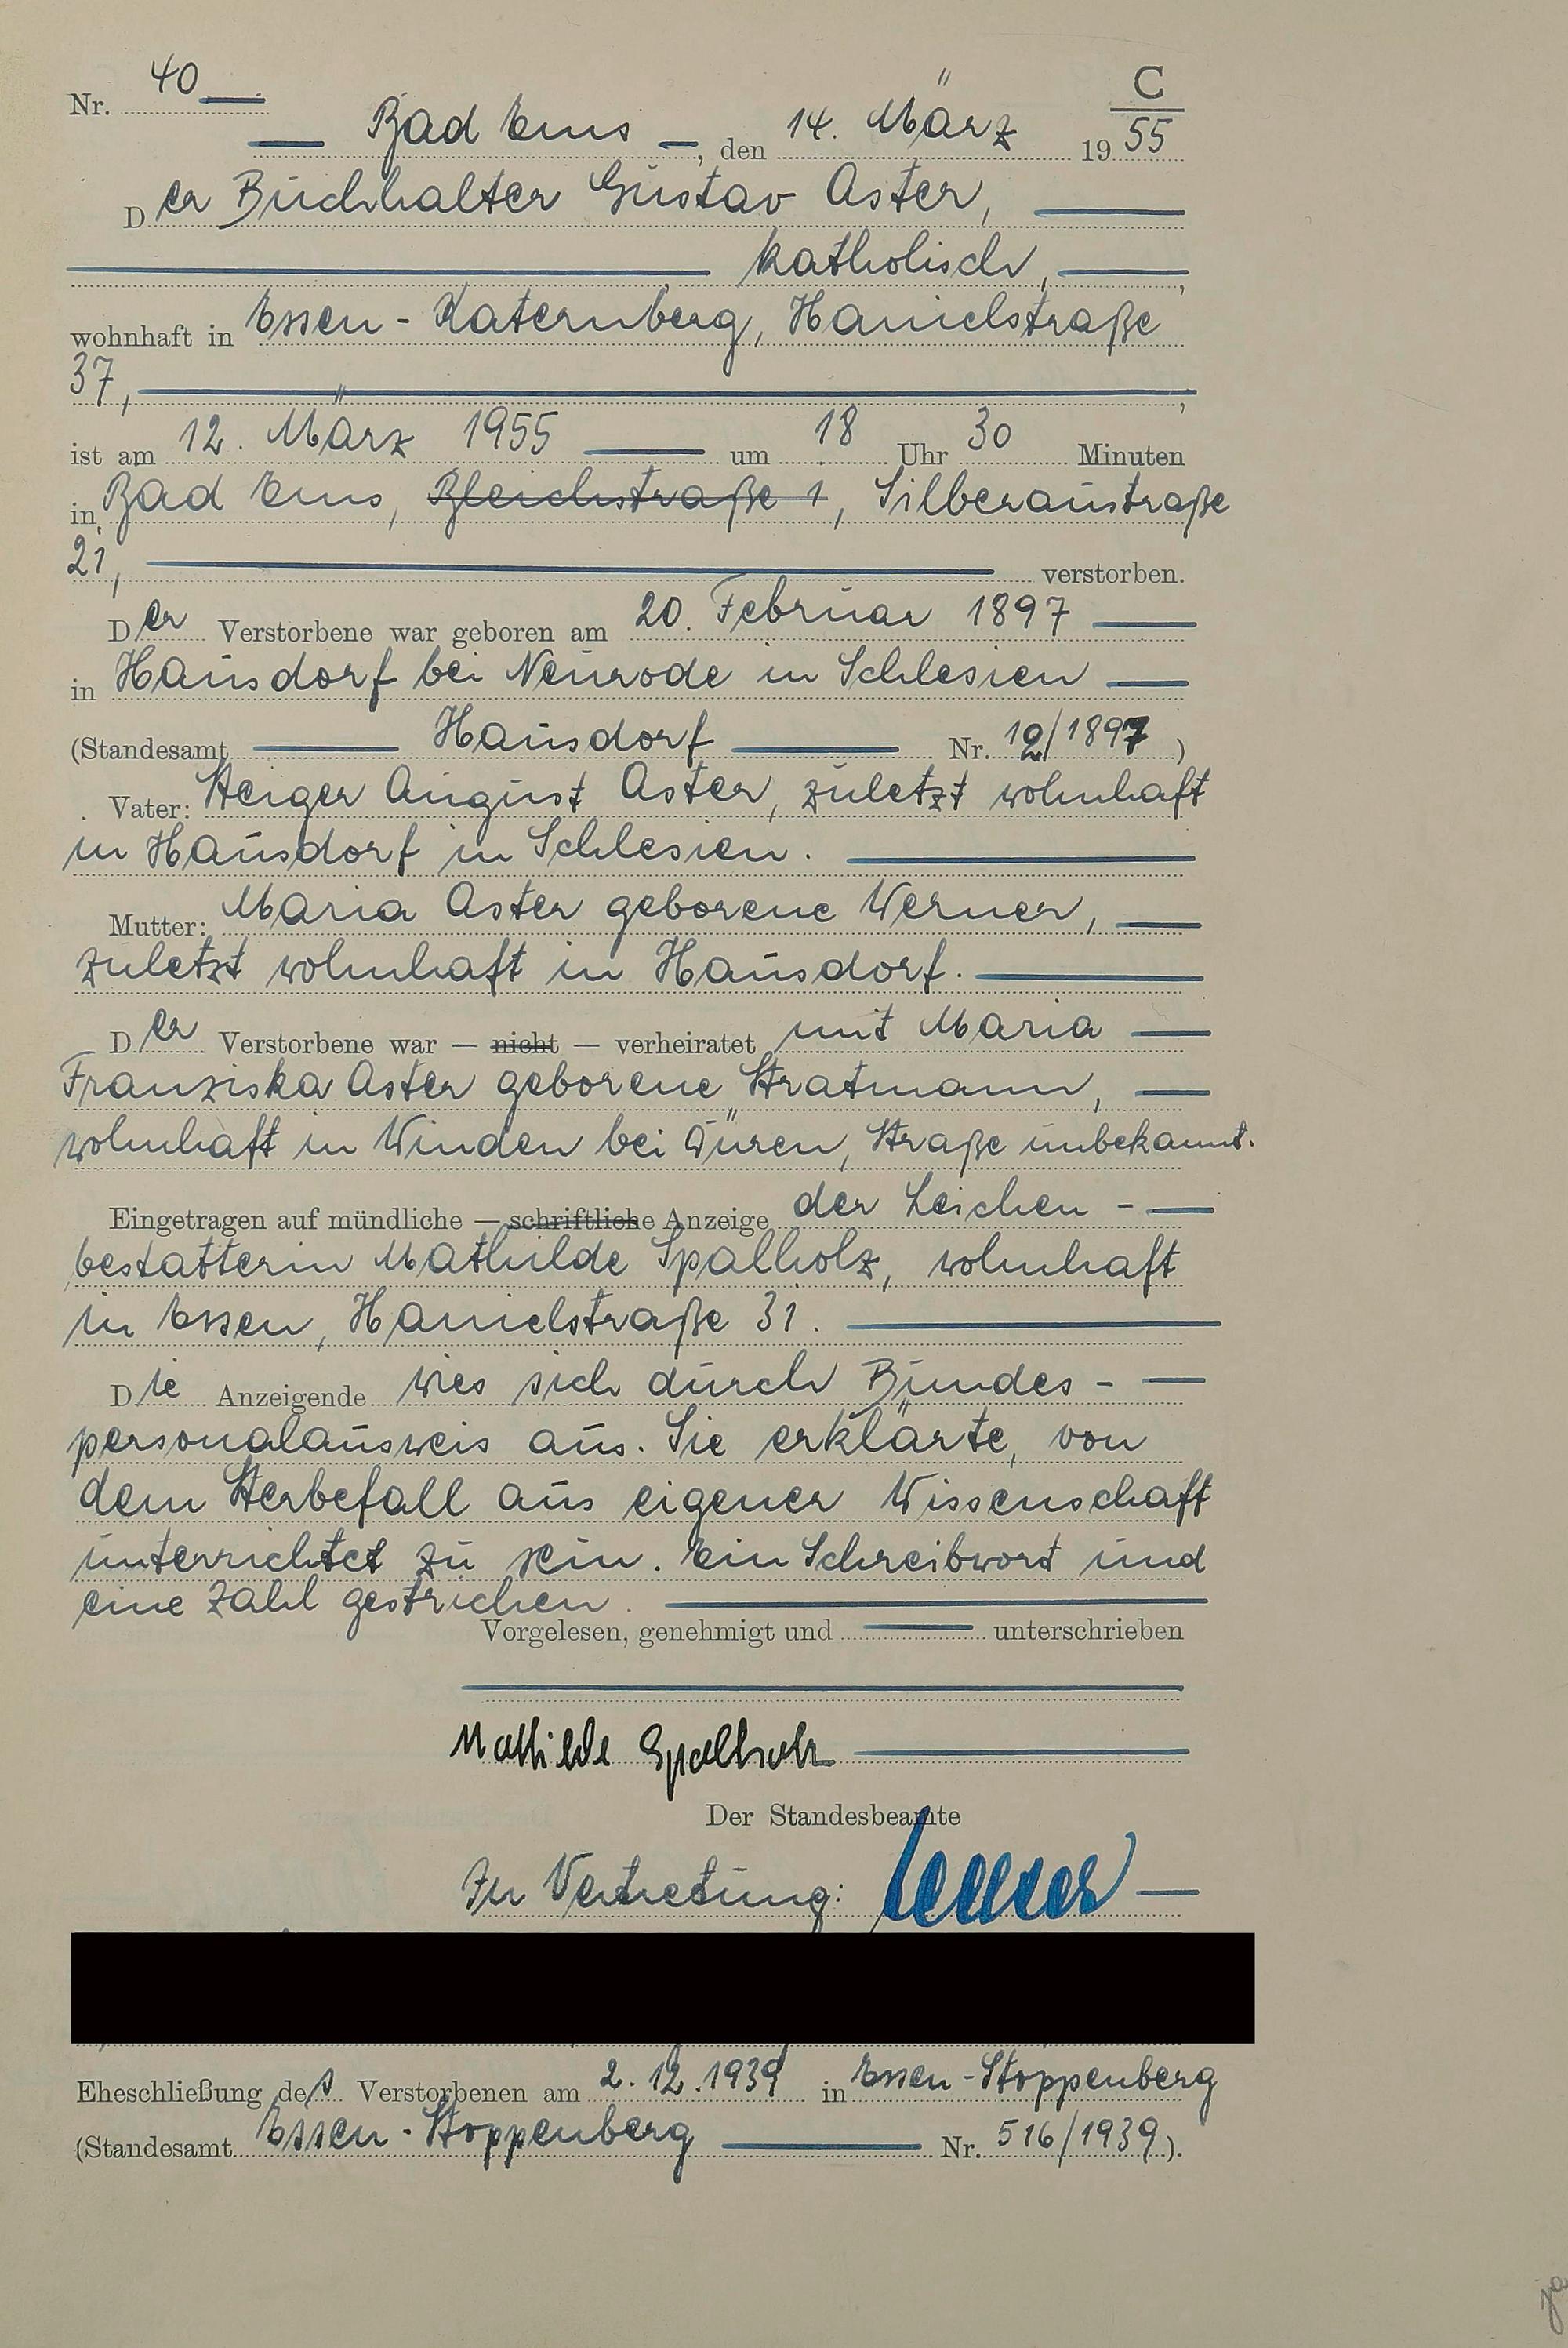 Nr. 40
C
Bad Ems, den 14. März 1955
Der Buchhalter Gustav Aster,
katholisch,
wohnhaft in Essen-Katernberg, Hanielstraße
37,
ist am 12. März 1955 um 18 Uhr 30 Minuten
in Bad Ems, Bleichstraße 1, Silberaustraße
21, verstorben.
Der Verstorbene war geboren am 20. Februar 1897
in Hausdorf bei Neurode in Schlesien
(Standesamt Hausdorf Nr. 12/1897)
Vater: Steiger August Aster, zuletzt wohnhaft
in Hausdorf in Schlesien.
Mutter: Maria Aster geborene Werner,
zuletzt wohnhaft in Hausdorf.
Der Verstorbene war — nicht — verheiratet mit Maria
Franziska Aster geborene Stratmann,
wohnhaft in Winden bei Düren, Straße unbekannt.
Eingetragen auf mündliche — schriftliche Anzeige der Leichen-
bestatterin Mathilde Spalholz, wohnhaft
in Essen, Hanielstraße 31.
Die Anzeigende wies sich durch Bundes-
personalausweis aus. Sie erklärte, von
dem Sterbefall aus eigener Wissenschaft
unterrichtet zu sein. Ein Schreibwort und
eine Zahl gestrichen.
Vorgelesen, genehmigt und unterschrieben
Mathilde Spalholz
Der Standesbeamte
In Vertretung:
Eheschließung des Verstorbenen am 2.12.1939 in Essen-Stoppenberg
(Standesamt Essen-Stoppenberg Nr. 516/1939).